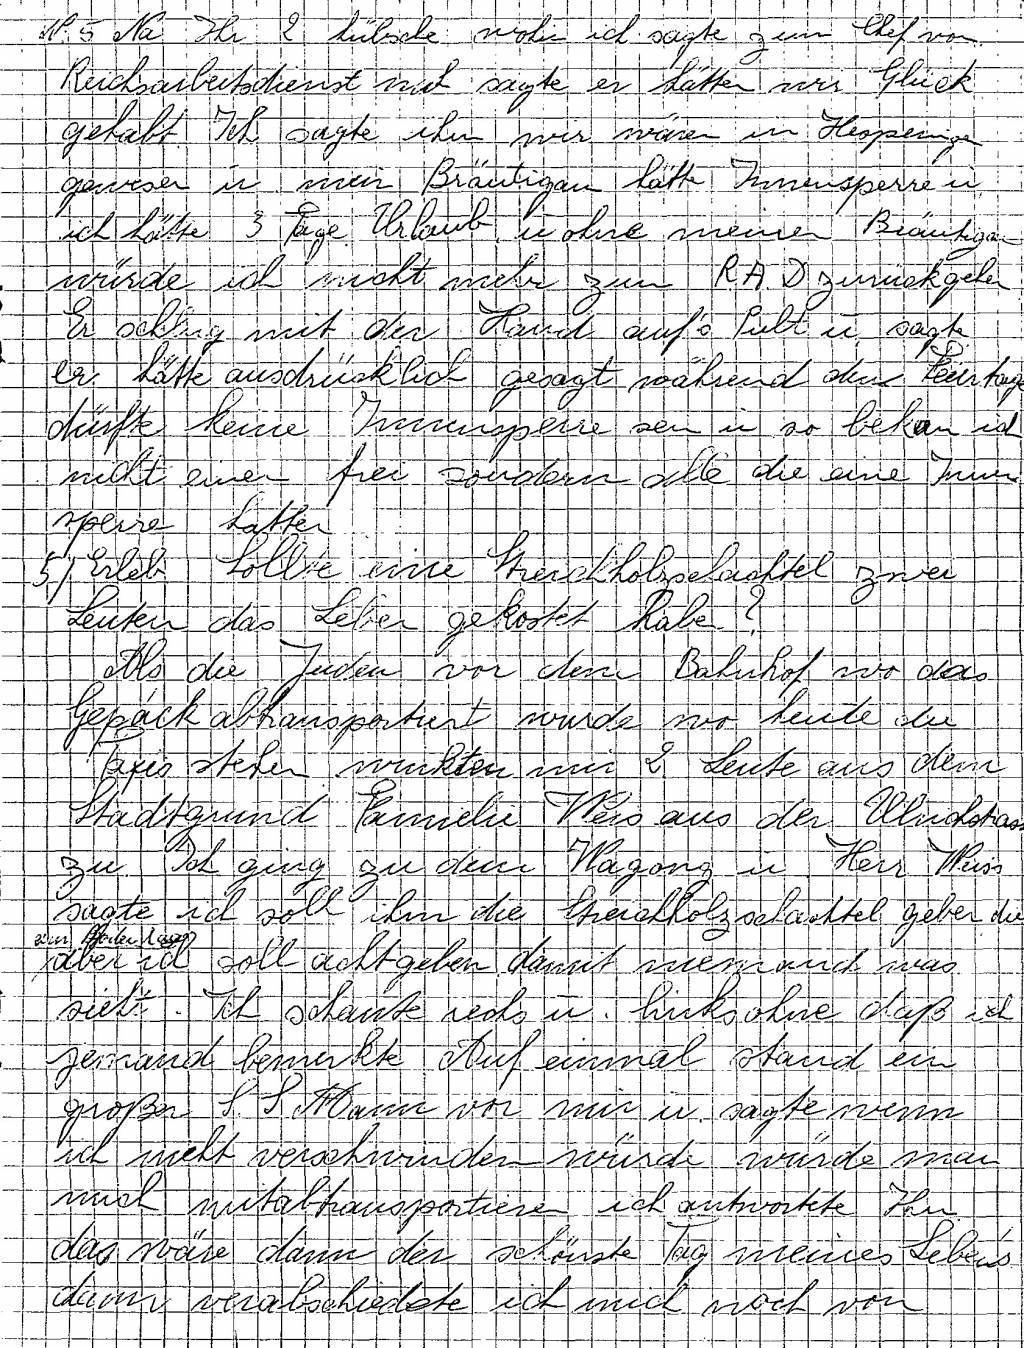 N. 5 Na Ihr 2 hübsche wohin ich sagte zum Chef von
Reichsarbeitsdienst und sagte er hätten wir Glück
gehabt. Ich sagte ihm wir wären in Hesperinge
gewesen u mein Bräutigam hätte Innensperre u
ich hätte 3 Tage Urlaub u ohne meinen Bräutigam
würde ich nicht mehr zum R.A.D zurückgehen
Er schlug mit der Hand auf's Pult u. sagte
er hätte ausdrücklich gesagt während den Feiertage
dürfte keine Innensperre sein u so bekam ich
nicht einen frei sondern alle die eine Innen
sperre hatten
5) Erleb Sollte eine Streichholzschachtel zwei
Leuten das Leben gekostet habe?
Als die Juden vor dem Bahnhof wo das
Gepäck abtransportiert wurde wo heute die
Taxis stehen winkten mir 2 Leute aus dem
Stadtgrund Familie Weis aus der Ulrichstrass
zu. Ich ging zu dem Wagong u Herr Weiss
sagte ich soll ihm die Streichholzschachtel geben die
am Boden lag
aber ich soll achtgeben damit niemand was
sieht. Ich schaute rechs u. links ohne daß ich
jemand bemerkte Auf einmal stand ein
großer S.S Mann vor mir u. sagte wenn
ich nicht verschwinden würde würde man
mich mitabtransportieren ich antwortete Ihm
das wäre dann der schönste Tag meines Leben's
dann verabschiedete ich mich noch von